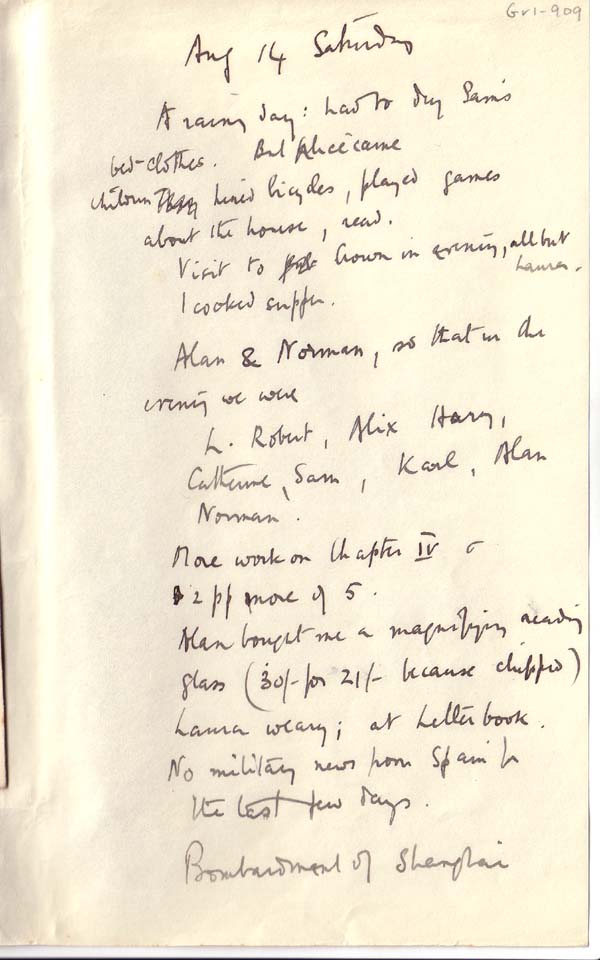 Gr1-909
Aug 14 Saturday
A rainy day: had to dry Sam's
bed-clothes. But Alice came
children hired bicycles, played games
about the house, read.
Visit to Crown in evening, all but
Laura.
I cooked supper.
Alan & Norman, so that in the
evening we were
L. Robert, Alix Harry,
Catherine, Sam, Karl, Alan
Norman.
More work on Chapter IV &
2 pp more of 5.
Alan bought me a magnifying reading
glass (30/- for 21/- because chipped)
Laura weary; at Letterbook.
No military news from Spain for
the last few days.
Bombardment of Shanghai